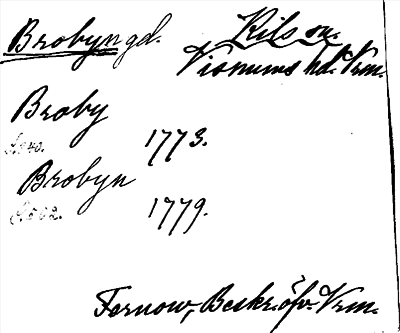 Brobyn gd. Kils sn.
Visnums hd. Vrm.
Broby
1773.
Brobyn
1779.
Fernow, Beskr. öfv. Vrm.